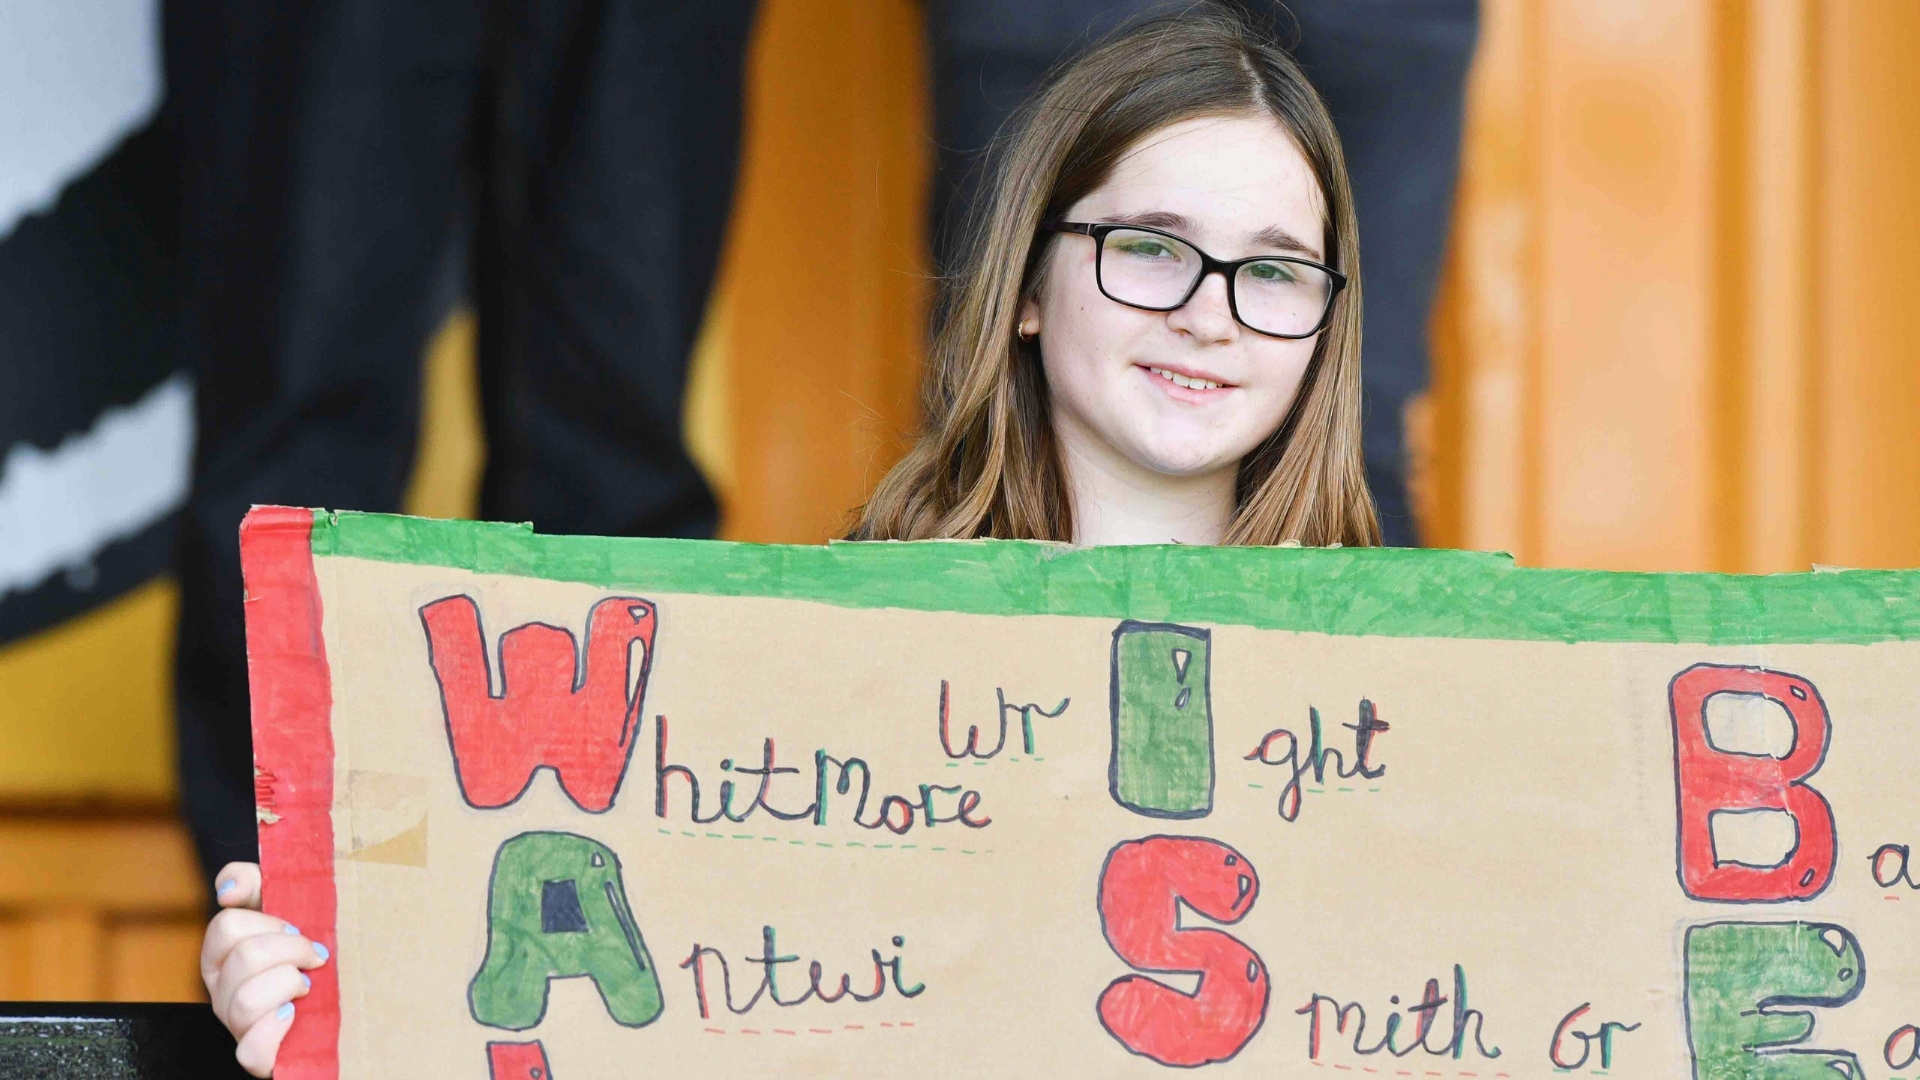 WhitMore WrIght Ba
Antwi Smith GrEa